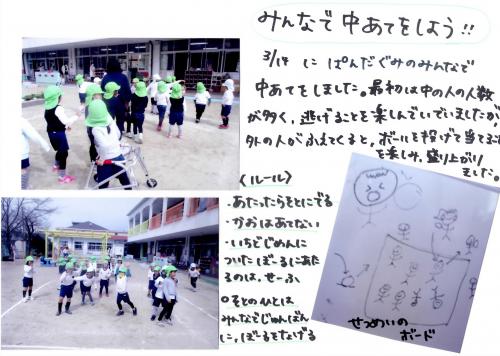 みんなで中あてをしよう!!
3/14 に ぱんだぐみのみんなで
中あてをしました。最初は中の人の人数
が多く、逃げることを楽しんでいましたが
外の人がふえてくると、ボールを投げて当てる
を楽しみ、盛り上がり
ました。
〈ルール〉
・あたったらそとにでる
・かおはあてない
・いちどじめんに
ついたぼーるにあた
るのは、せーふ
○そとのひとは
みんなでじゅんばん
に、ぼーるをなげる
せつめいの
ボード